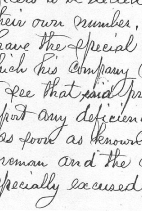 their own number,
have the special
which his company
see that said pr
port any deficien
as soon as known
roman and the c
specially excused